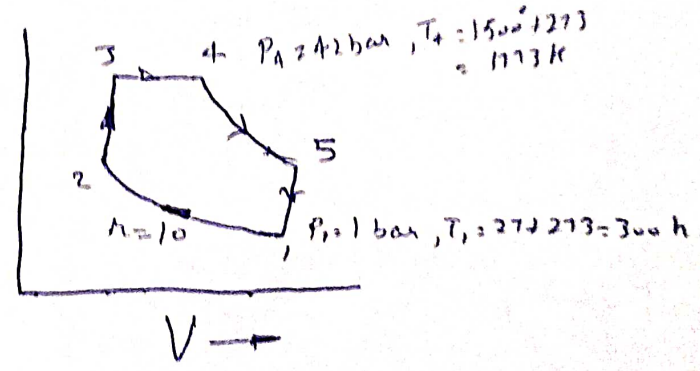 3 4 P4 = 42 bar , T4 = 1500°+273
= 1773 K
5
2
r = 10 P1 = 1 bar , T1 = 27+273 = 300 k
1
V